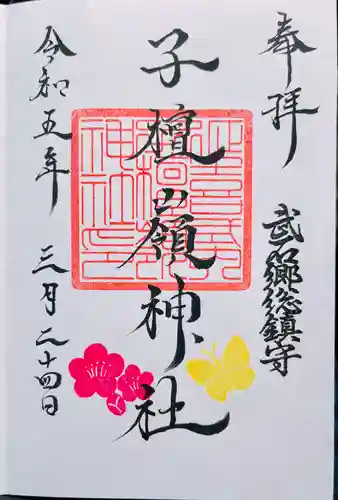 奉拝
武石郷総鎮守
子檀嶺神社
令和五年
三月二十四日